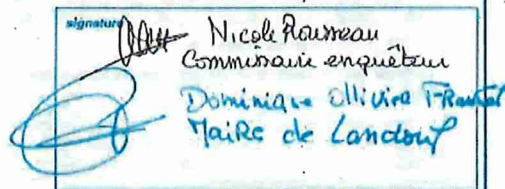 signature
Nicole Rousseau
Commissaire enquêteur
Dominique Ollivier
Maire de